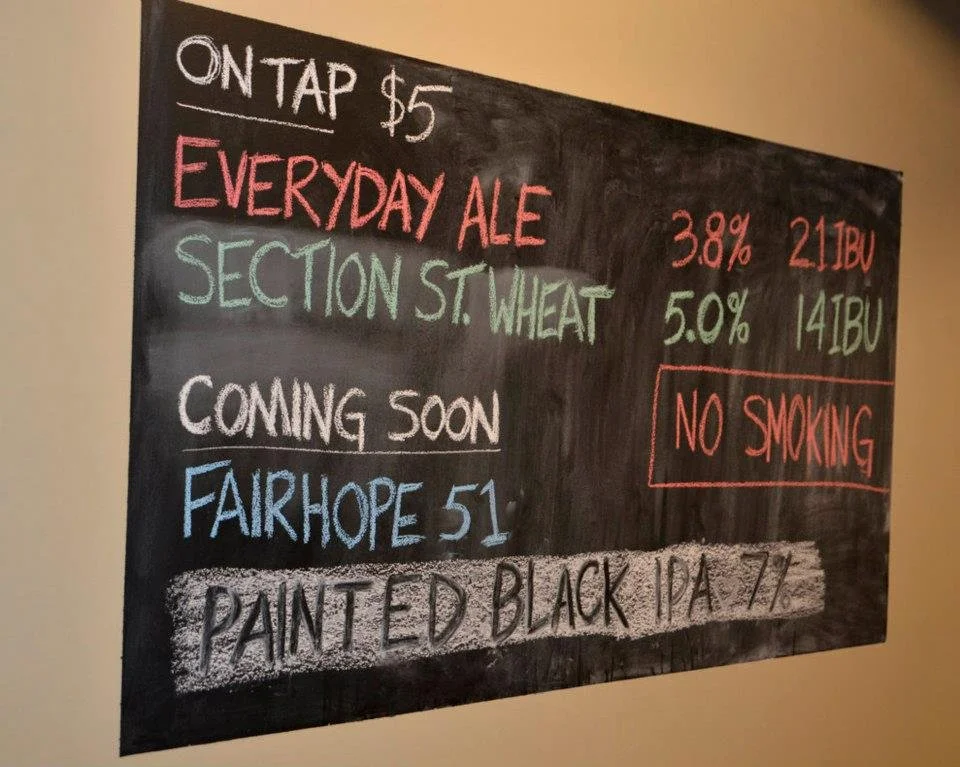 ON TAP $5
EVERYDAY ALE 3.8% 21 IBU
SECTION ST. WHEAT 5.0% 14 IBU
COMING SOON
NO SMOKING
FAIRHOPE 51
PAINTED BLACK IPA 7%